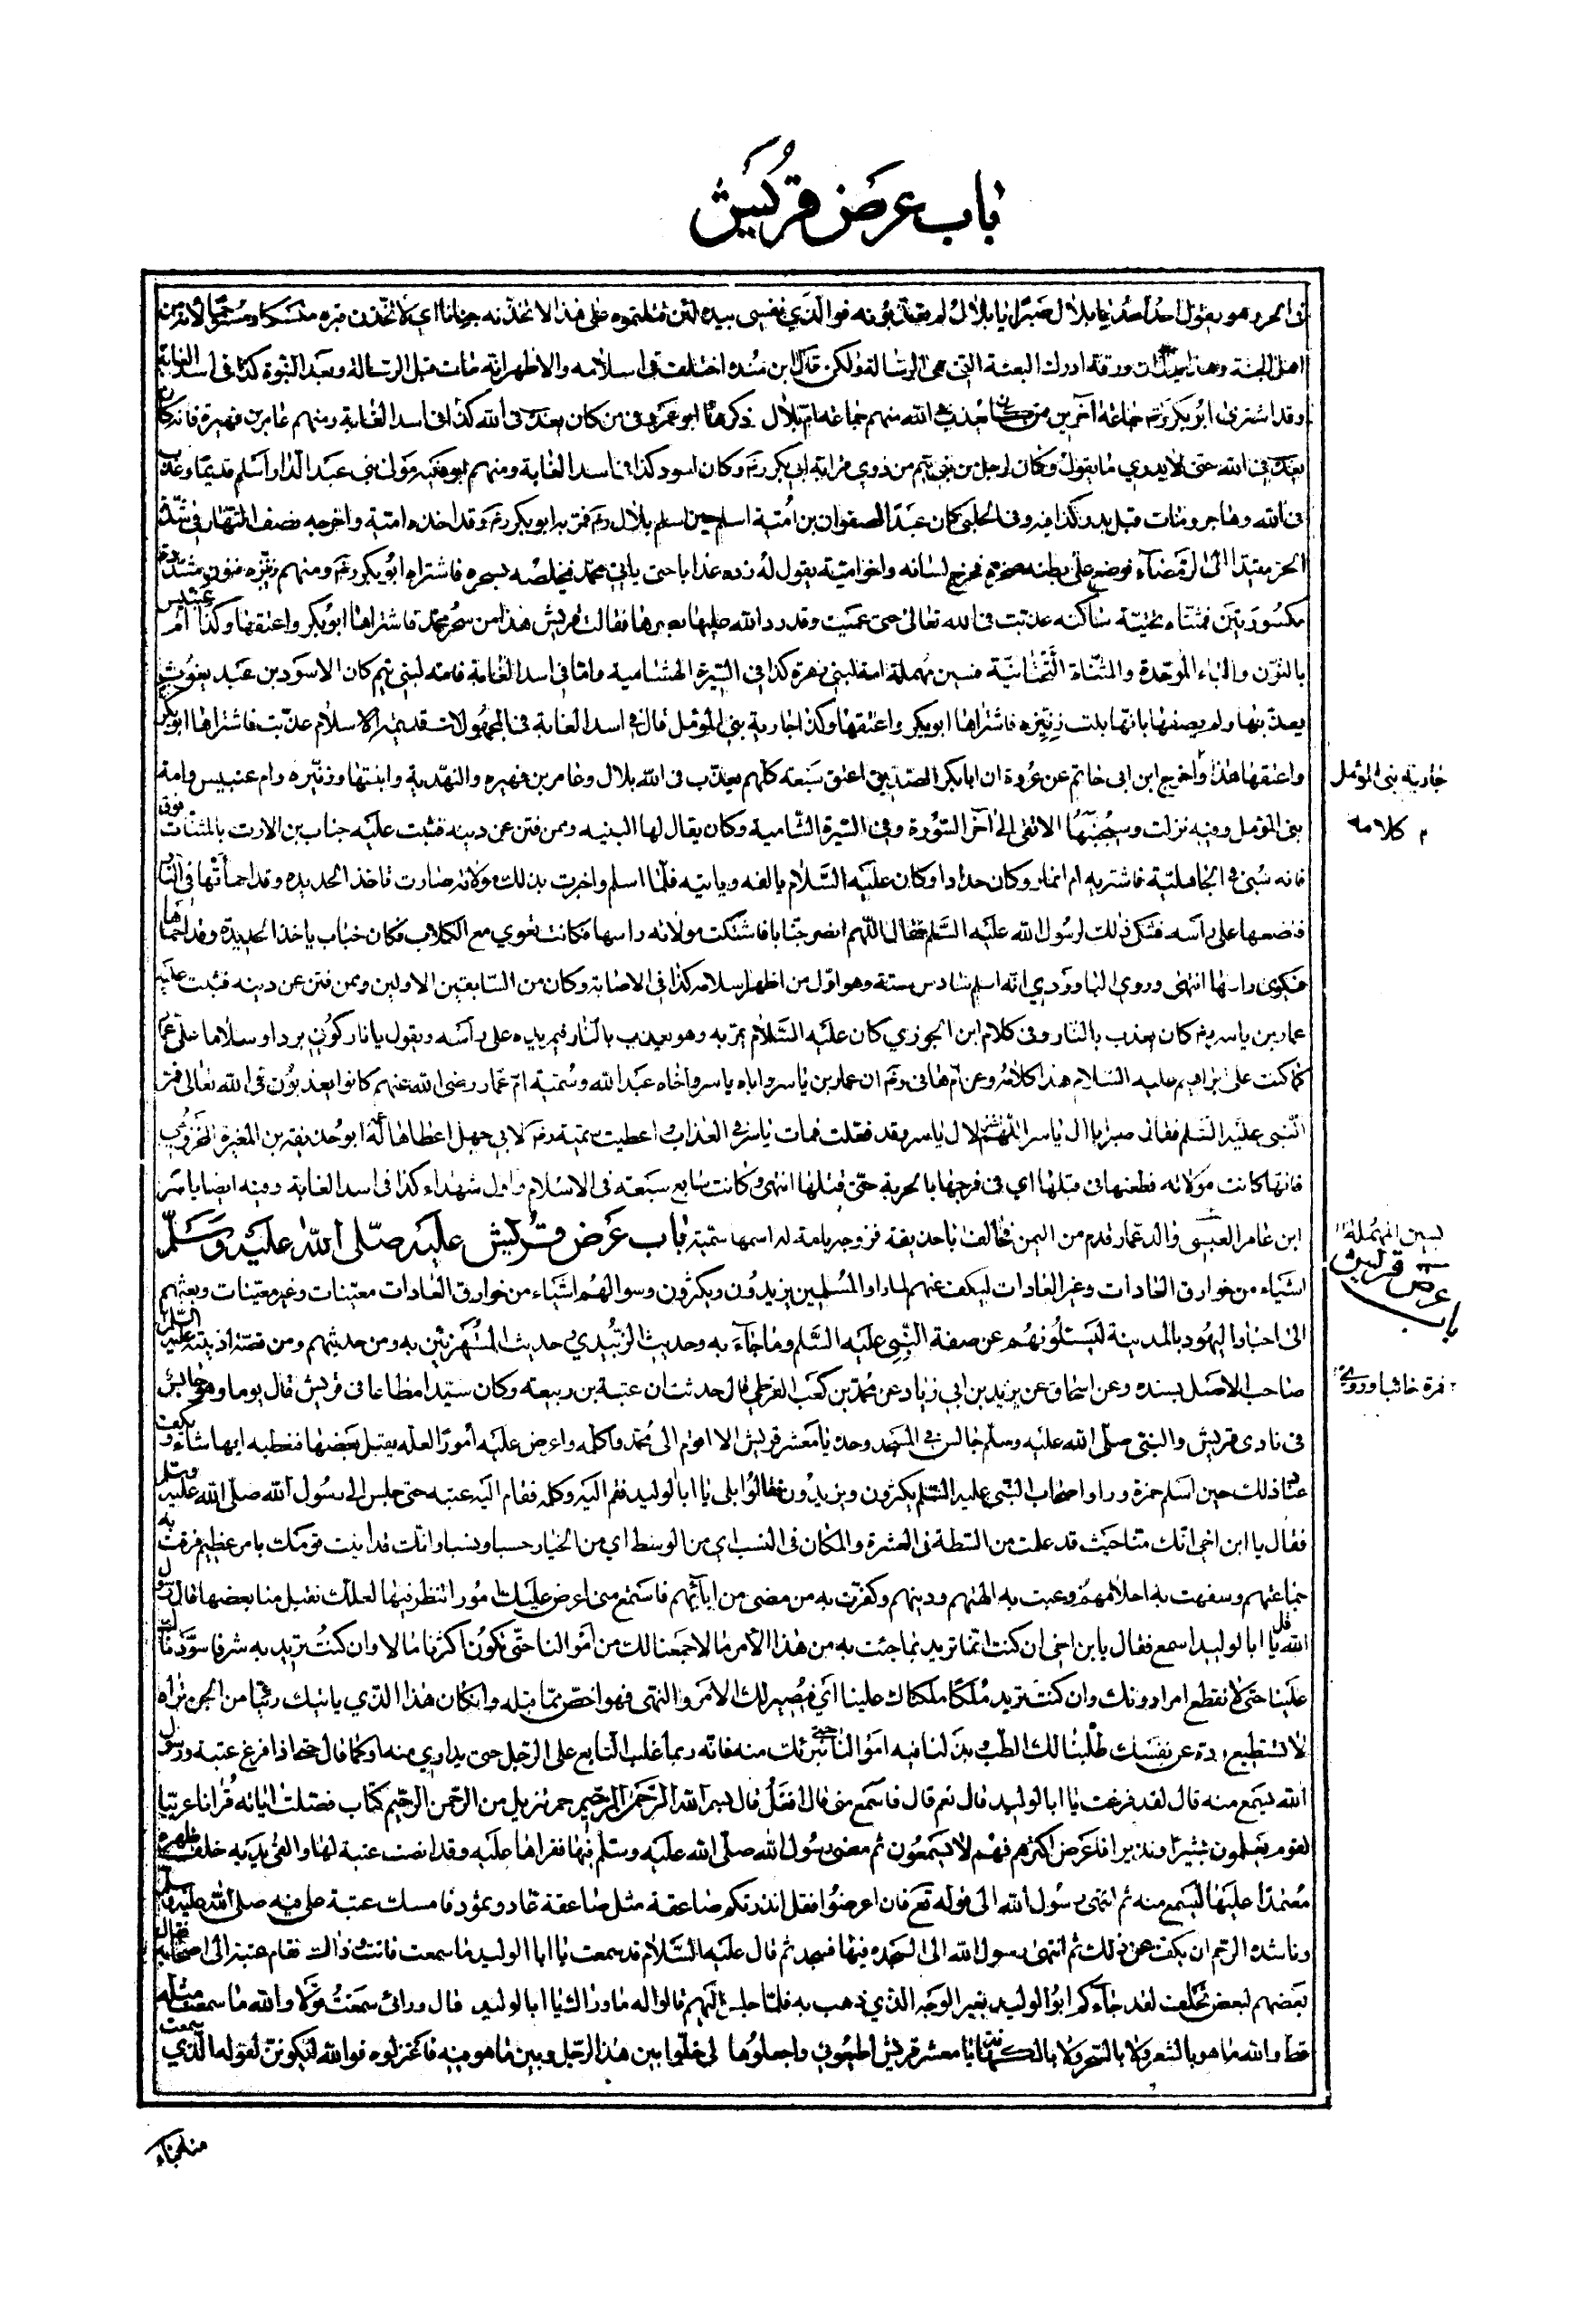 باب عرض قريش
في الحر وهو يقول احد احد يا بلال صبرا يا بلال لم يعذبونه فوالذي نفسي بيده لئن قتلتموه على هذا لاتخذنه حنانا اي لاتخذن قبره منسكا ومسترحما لانه من
اهل الجنة وهذا يدل ان ورقة ادرك البعثة التي هي الرسالة ولكن قال ابن منده اختلف في اسلامه والاظهر انه مات قبل الرسالة وبعد النبوة كذا في اسد الغابة
وقد اشترى ابو بكر رض جماعة آخرين ممن كان يعذب في الله منهم حمامة ام بلال ذكرها ابو عمر وفي من كان يعذب في الله كذا في اسد الغابة ومنهم عامر بن فهيرة فانه كان
يعذب في الله حتى لا يدري ما يقول وكان لرجل من بني تيم من ذوي قرابة ابي بكر رض وكان اسود كذا في اسد الغابة ومنهم ابو فكيهة مولى بني عبد الدار اسلم قديما وعذب
في الله وهاجر ومات قبل بدر كذا فيه وفي الحلبي كان عبدا لصفوان بن امية اسلم حين اسلم بلال رض فمر به ابو بكر رض وقد اخذه امية واخرجه نصف النهار في شدة
الحر مقيدا الى الرمضاء فوضع على بطنه صخرة فخرج لسانه واخو امية يقول له زده عذابا حتى ياتي محمد فيخلصه بسحره فاشتراه ابو بكر رض ومنهم زنيره فنون مشددة
مكسورتين فمثناة تحتية ساكنه عذبت في الله تعالى حتى عميت وقد رد الله عليها بصرها فقالت قريش هذا من سحر محمد فاشتراها ابو بكر واعتقها وكذا ام عنبيس
بالنون والباء الموحدة والمثناة التحتانية فسين مهملة امة لبني زهرة كذا في السيرة الهشامية واما في اسد الغابة فامة لبني تيم كان الاسود بن عبد يغوث
يعذبها ولم يصفها بانها بنت زنيره فاشتراها ابو بكر واعتقها وكذا جارية بني المؤمل قال في اسد الغابة في المجهولات قديمة الاسلام عذبت فاشتراها ابو بكر
واعتقها هذا واخرج ابن ابي حاتم عن عروة ان ابا بكر الصديق اعتق سبعة كلهم يعذب في الله بلال وعامر بن فهيره والنهدية وابنتها وزنيره وام عنبيس وامة
بني المؤمل وفيه نزلت وسيجنبها الاتقى الى آخر السورة وفي السيرة الشامية وكان يقال لها البنيه وممن فتن عن دينه فثبت عليه خباب بن الارت بالمثناة فوق
فانه سبي في الجاهلية فاشتريه ام انمار وكان حدادا وكان عليه السلام يالفه وياتيه فلما اسلم واخبرت بذلك مولاته صارت تاخذ الحديده وقد احمأتها في النار
فتضعها على راسه فشكى ذلك لرسول الله عليه السلام فقال اللهم انصر خبابا فاشتكت مولاته راسها فكانت تعوي مع الكلاب فكان خباب ياخذ الحديدة وقد احماها
فيكوي راسها انتهى وروي الباوردي انه اسلم سادس ستة وهو اول من اظهر اسلامه كذا في الاصابة وكان من السابقين الاولين وممن فتن عن دينه فثبت عليه
عمار بن ياسر رض كان يعذب بالنار وفي كلام ابن الجوزي كان عليه السلام يمر به وهو يعذب بالنار فيمر يده على رأسه ويقول يا نار كوني بردا وسلاما على عمار
كما كنت على ابراهيم عليه السلام هذا كلامه وعن ام هاني رض ان عمار بن ياسر واباه ياسر واخاه عبد الله وسمية ام عمار رضي الله عنهم كانوا يعذبون في الله تعالى فمر
النبي عليه السلم فقال صبرا يا آل ياسر اللهم اغفر لآل ياسر وقد فعلت فمات ياسر في العذاب واعطيت سمية رض لابي جهل اعطاها له ابو حذيفة بن المغيرة المخزومي
فانها كانت مولاته فطعنها في قبلها اي في فرجها بالحربة حتى قتلها انتهى وكانت سابع سبعة في الاسلام واول شهداء كذا في اسد الغابة وفيه ايضا ياسر
ابن عامر العبسي والد عمار قدم من اليمن فحالف ابا حذيفة فزوجه بامة له اسمها سمية باب عرض قريش عليه صلى الله عليه وسلم
اشياء من خوارق العادات وغير العادات ليكف عنهم لما راوا المسلمين يزيدون ويكثرون وسوالهم اشياء من خوارق العادات معينات وغير معينات وبعثهم
الى احبار اليهود بالمدينة ليسئلونهم عن صفة النبي عليه السلم وما جاء به وحديث الزبيدي حديث المستهزئين به ومن حديثهم ومن قصة اذيته عليه السلم
صاحب الاصل بسنده وعن اسحاق عن يزيد بن ابي زياد عن محمد بن كعب القرظي قال حدثت ان عتبة بن ربيعة وكان سيدا مطاعا في قريش قال يوما وهو جالس
في نادي قريش والنبي صلى الله عليه وسلم جالس في المسجد وحده يا معشر قريش الا اقوام الى محمد واكلمه واعرض عليه أمورا لعله يقبل بعضها فنعطيه ايها شاء ويكف
عنا ذلك حين اسلم حمزة وراوا اصحاب النبي عليه السلم يكثرون ويزيدون فقالوا بلى يا ابا الوليد فقم اليه وكلمه فقام اليه عتبه حتى جلس الى رسول الله صلى الله عليه وسلم
فقال يا ابن اخي انك منا حيث قد علمت من السطة في العشرة والمكان في النسب اي من الوسط اي من الخيار حسبا ونسبا وانك قد اتيت قومك بامر عظيم فرقت به
جماعتهم وسفهت به احلامهم وعبت به الهتهم ودينهم وكفرت به من مضى من ابائهم فاستمع مني اعرض عليك امورا تنظر فيها لعلك تقبل منا بعضها قال رسول
الله قل يا ابا لوليد اسمع فقال يا بن اخي ان كنت انما تريد بما جئت به من هذا الامر مالا جمعنا لك من اموالنا حتى تكون اكثرنا مالا وان كنت تريد به شرفا سودناك
علينا حتى لا نقطع امرا دونك وان كنت تريد ملكا ملكناك علينا اي فيصير لك الامر والنهى فهو اخص مما قبله وان كان هذا الذي ياتيك رئيا من الجن تراه
لا تستطيع رده عن نفسك طلبنا لك الطب وبذلنا فيه اموالنا حتى نبرئك منه فانه ربما غلب التابع على الرجل حتى يداوي منه او كما قال حتى اذا فرغ عتبة ورسول
الله يسمع منه قال لقد فرغت يا ابا لوليد قال نعم قال فاسمع مني قال افعل قال بسم الله الرحمن الرحيم حم تنزيل من الرحمن الرحيم كتاب فصلت اياته قرانا عربيا
لقوم يعلمون بشيرا ونذيرا فاعرض اكثرهم فهم لا يسمعون ثم مضى رسول الله صلى الله عليه وسلم فيها فقراها عليه وقد انصت عتبة لها والقى يديه خلف ظهره
معتمدا عليها ليسمع منه ثم انتهى رسول الله الى قوله تع فان اعرضوا فقل انذرتكم صاعقة مثل صاعقة عاد وثمود فامسك عتبة على فيه صلى الله عليه وسلم
وناشده الرحم ان يكف عن ذلك ثم انتهى رسول الله الى السجده فيها فسجد ثم قال عليه السلام قد سمعت يا ابا الوليد ما سمعت فانت وذاك فقام عتبة الى اصحابه فقال
بعضهم لبعض نحلف لقد جاءكم ابو الوليد بغير الوجه الذي ذهب به فلما جلس اليهم قالوا له ما وراك يا ابا لوليد قال ورائي سمعت قولا والله ما سمعت مثله
قط والله ما هو بالشعر ولا بالسحر ولا بالكهانة يا معشر قريش اطيعوني واجعلوها لي خلوا بين هذا الرجل وبين ما هو فيه فاعتزلوه فوالله ليكونن لقوله الذي سمعت
جارية بني المؤمل
كلامه
بسين المهملة
باب عرض قريش
منه نبأ